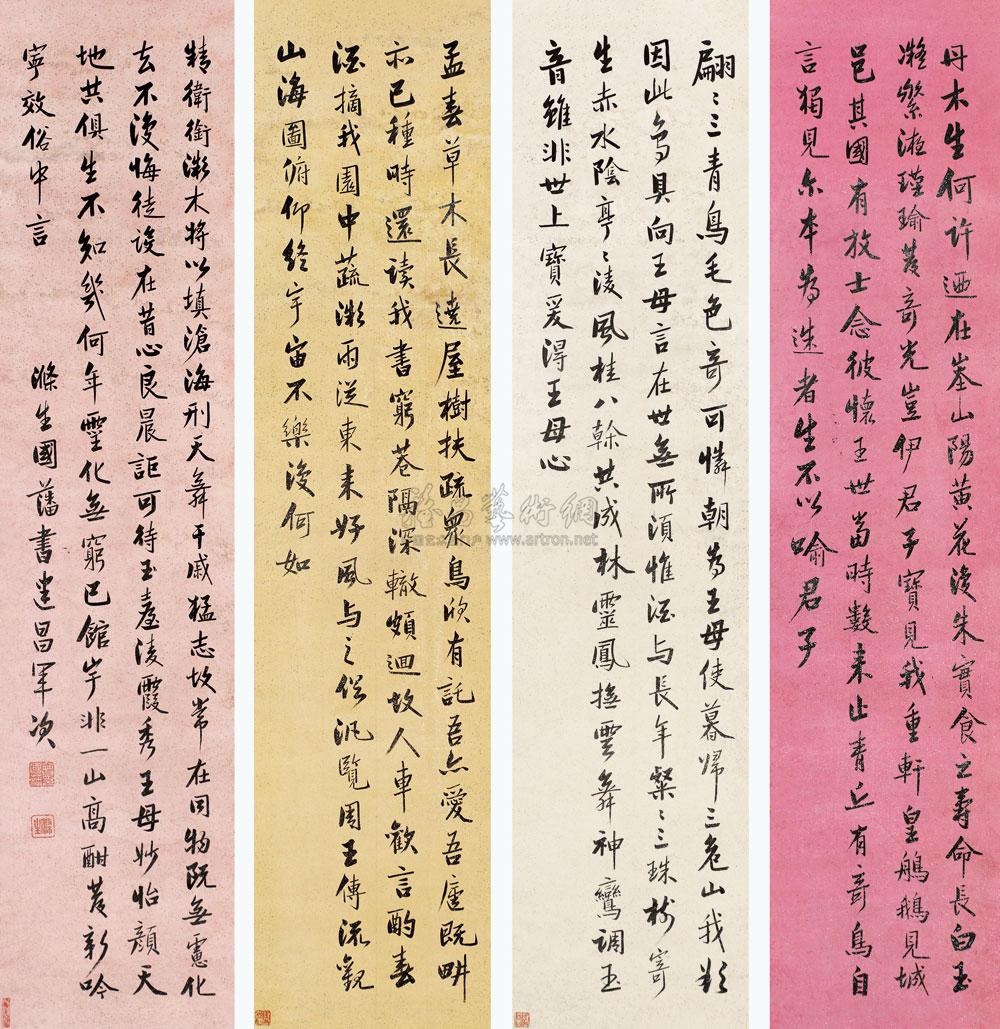 丹木生何許迺在峚山陽黃花復朱實食之壽命長白玉
凝縈液瑾瑜發奇光豈伊君子寶見我重軒皇鵃鵝見城
邑其國有放士念彼懷王世當時數来止青丘有奇鳥自
言獨見尔本為迷者生不以喻君子
翩〻三青鳥毛色奇可憐朝為王母使暮歸三危山我欲
因此鳥具向王母言在世無所須惟酒与長年粲〻三珠樹寄
生赤水陰亭〻凌風桂八幹共成林靈鳳撫雲舞神鸞調玉
音雖非世上寶爰得王母心
孟春草木長遶屋樹扶疏眾鳥欣有託吾亦愛吾廬既畊
亦已種時還读我書窮巷隔深轍頗迴故人車歡言酌春
酒摘我園中蔬微雨從東来好風与之俱汎覽周王傳流觀
山海圖俯仰終宇宙不樂復何如
精衛銜微木將以填滄海刑天舞干戚猛志故常在同物既無慮化
去不復悔徒設在昔心良晨詎可待玉臺凌霞秀王母妙怡顏天
地共俱生不知幾何年靈化無窮已館宇非一山高酣發新吟
寧效俗中言
滌生國藩書建昌軍次
雅昌藝術網
www.artron.net